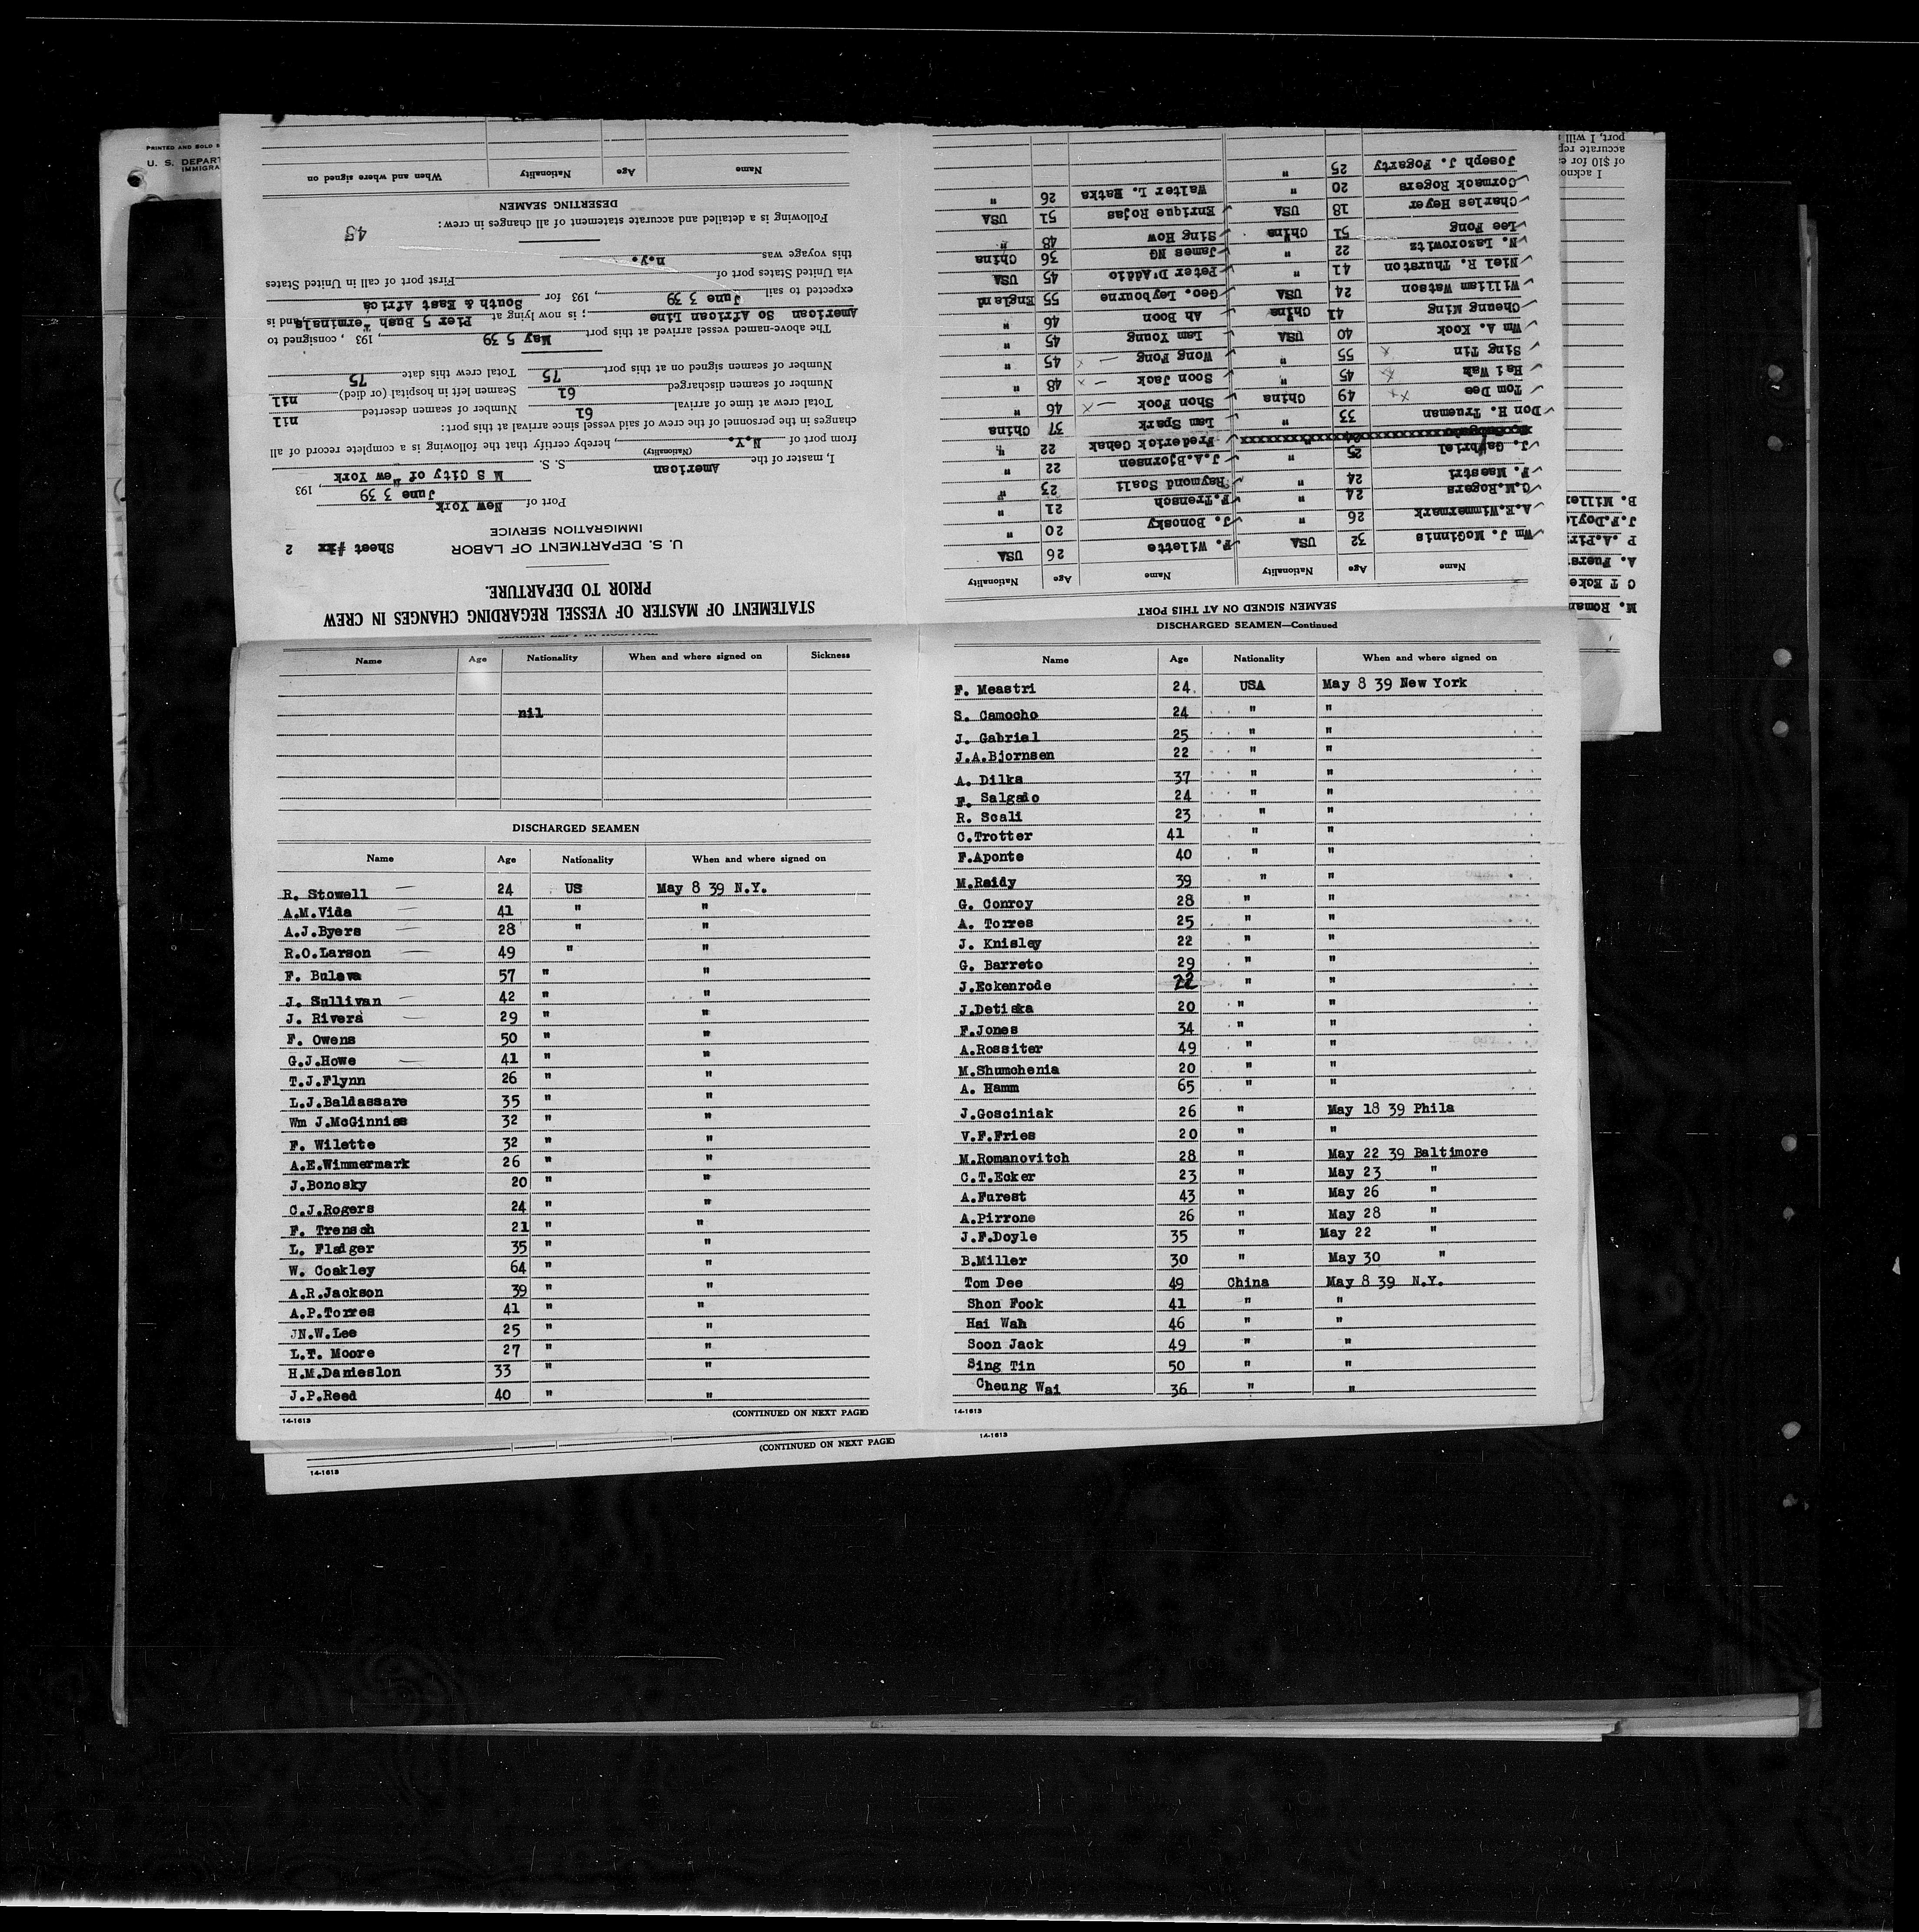 PRINTED AND SOLD
U. S. DEPAR
IMMIGRA
STATEMENT OF MASTER OF VESSEL REGARDING CHANGES IN CREW
PRIOR TO DEPARTURE.
U. S. DEPARTMENT OF LABOR
IMMIGRATION SERVICE
Sheet # 2
Port of New York
June 3 39, 193
I, master of the American S. S. M S City of New York
(Nationality)
from port of N.Y., hereby certify that the following is a complete record of all
changes in the personnel of the crew of said vessel since arrival at this port:
Total crew at time of arrival 61 Number of seamen deserted nil
Number of seamen discharged 61 Seamen left in hospital (or died) nil
Number of seamen signed on at this port 75 Total crew this date 75
The above-named vessel arrived at this port May 5 39, 193 , consigned to
American So African Line; is now lying at Pier 5 Bush Terminals and is
expected to sail June 3 39, 193 for South & East Africa
via United States port of First port of call in United States
this voyage was n.y.
45
Following is a detailed and accurate statement of all changes in crew:
DESERTING SEAMEN
Name Age Nationality When and where signed on
SEAMEN SIGNED ON AT THIS PORT
Name Age Nationality Name Age Nationality
Wm J. McGinnis 32 USA F. Wilette 26 USA
A.E.Wimmermark 26 " J. Bonosky 20 "
C.M.Rogers 24 " F.Trensch 21 "
F. Maestri 24 Raymond Scali 23 "
J. Gabriel 25 " J.A.Bjornsen 22 "
Frederick Cehak 22 "
Don H. Trueman 33 " Lam Spark 37 China
Tom Dee 49 China Shon Fook 46 "
Hai Wah 45 " Soon Jack 48 "
Sing Tin 55 " Wong Fong 45 "
Wm A. Kook 40 USA Lam Young 45 "
Cheung Ming 41 China Ah Boon 46 "
William Watson 24 USA Geo. Leybourne 55 England
Niel R. Thurston 41 " Peter D'Addio 45 USA
N. Lazorowitz 22 " James NG 36 China
Lee Fong 51 China Sing How 48 "
Charles Heyer 18 USA Enrique Rojas 51 USA
Cormack Rogers 20 " Walter L. Batka 26 "
Joseph J. Fogarty 25 "
I ackno
of $10 for e
accurate rep
port, I will
M. Roman
C T Ecke
A. Fuers
P .A.Pir
J.F.Doyl
B. Miller
Name Age Nationality When and where signed on Sickness
nil
DISCHARGED SEAMEN
Name Age Nationality When and where signed on
R. Stowell 24 US May 8 39 N.Y.
A.M.Vida 41 " "
A.J.Byers 28 " "
R.O.Larson 49 " "
F. Bulava 57 " "
J. Sullivan 42 " "
J. Rivera 29 " "
F. Owens 50 " "
G.J.Howe 41 " "
T.J.Flynn 26 " "
L.J.Baldassare 35 " "
Wm J.McGinniss 32 " "
F. Wilette 32 " "
A.E.Wimmermark 26 " "
J.Bonosky 20 " "
C.J.Rogers 24 " "
F. Trensch 21 " "
L. Fladger 35 " "
W. Coakley 64 " "
A.R.Jackson 39 " "
A.P.Torres 41 " "
JN.W.Lee 25 " "
L.T. Moore 27 " "
H.M.Danieslon 33 " "
J.P.Reed 40 " "
14-1613 (CONTINUED ON NEXT PAGE)
DISCHARGED SEAMEN—Continued
Name Age Nationality When and where signed on
F. Meastri 24. USA May 8 39 New York
S. Camocho 24 " "
J. Gabriel 25 " "
J.A.Bjornsen 22 " "
A. Dilka 37 " "
F. Salgado 24 " "
R. Scali 23 " "
C.Trotter 41 " "
F.Aponte 40 " "
M.Reidy 39 " "
G. Conroy 28 " "
A. Torres 25 " "
J. Knisley 22 " "
G. Barreto 29 " "
J.Eckenrode 22 " "
J.Detiska 20 " "
F.Jones 34 " "
A.Rossiter 49 " "
M.Shumchenia 20 " "
A. Hamm 65 " "
J.Gosciniak 26 " May 18 39 Phila
V.F.Fries 20 " "
M.Romanovitch 28 " May 22 39 Baltimore
C.T.Ecker 23 " May 23 "
A.Furest 43 " May 26 "
A.Pirrone 26 " May 28 "
J.F.Doyle 35 " May 22 "
B.Miller 30 " May 30 "
Tom Dee 49 China May 8 39 N.Y.
Shon Fook 41 " "
Hai Wah 46 " "
Soon Jack 49 " "
Sing Tin 50 " "
Cheung Wai 36 " "
14-1613
(CONTINUED ON NEXT PAGE)
14-1613
14-1613